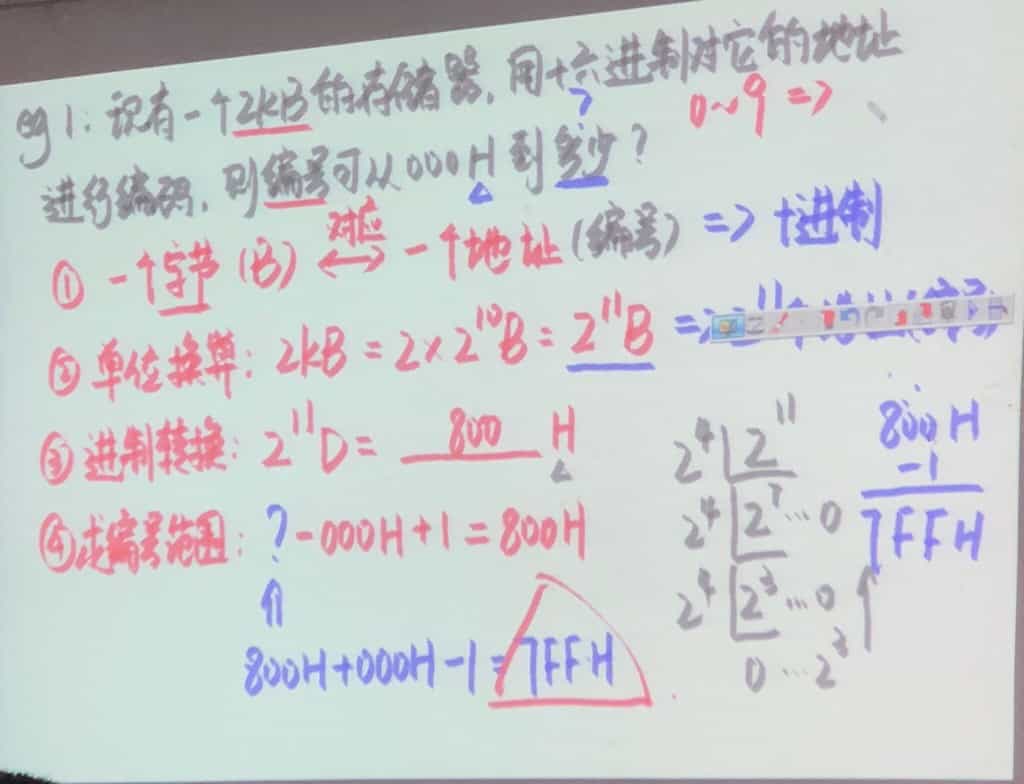 eg 1: 设有一个2kB的存储器, 用十六进制对它的地址
0~9 =>
?
进行编码, 则编号可从000H到多少?
① 一个字节 (B) 对应 一个地址 (编号) => 十进制
② 单位换算: 2kB = 2×2¹⁰B = 2¹¹B =>
③ 进制转换: 2¹¹D = 800 H
④ 求编号范围: ? - 000H + 1 = 800H
800H + 000H - 1 = 7FFH
2⁴ 2¹¹
2⁴ 2⁷ ... 0
2⁴ 2³ ... 0
0 ... 2³
800H
-1
7FFH